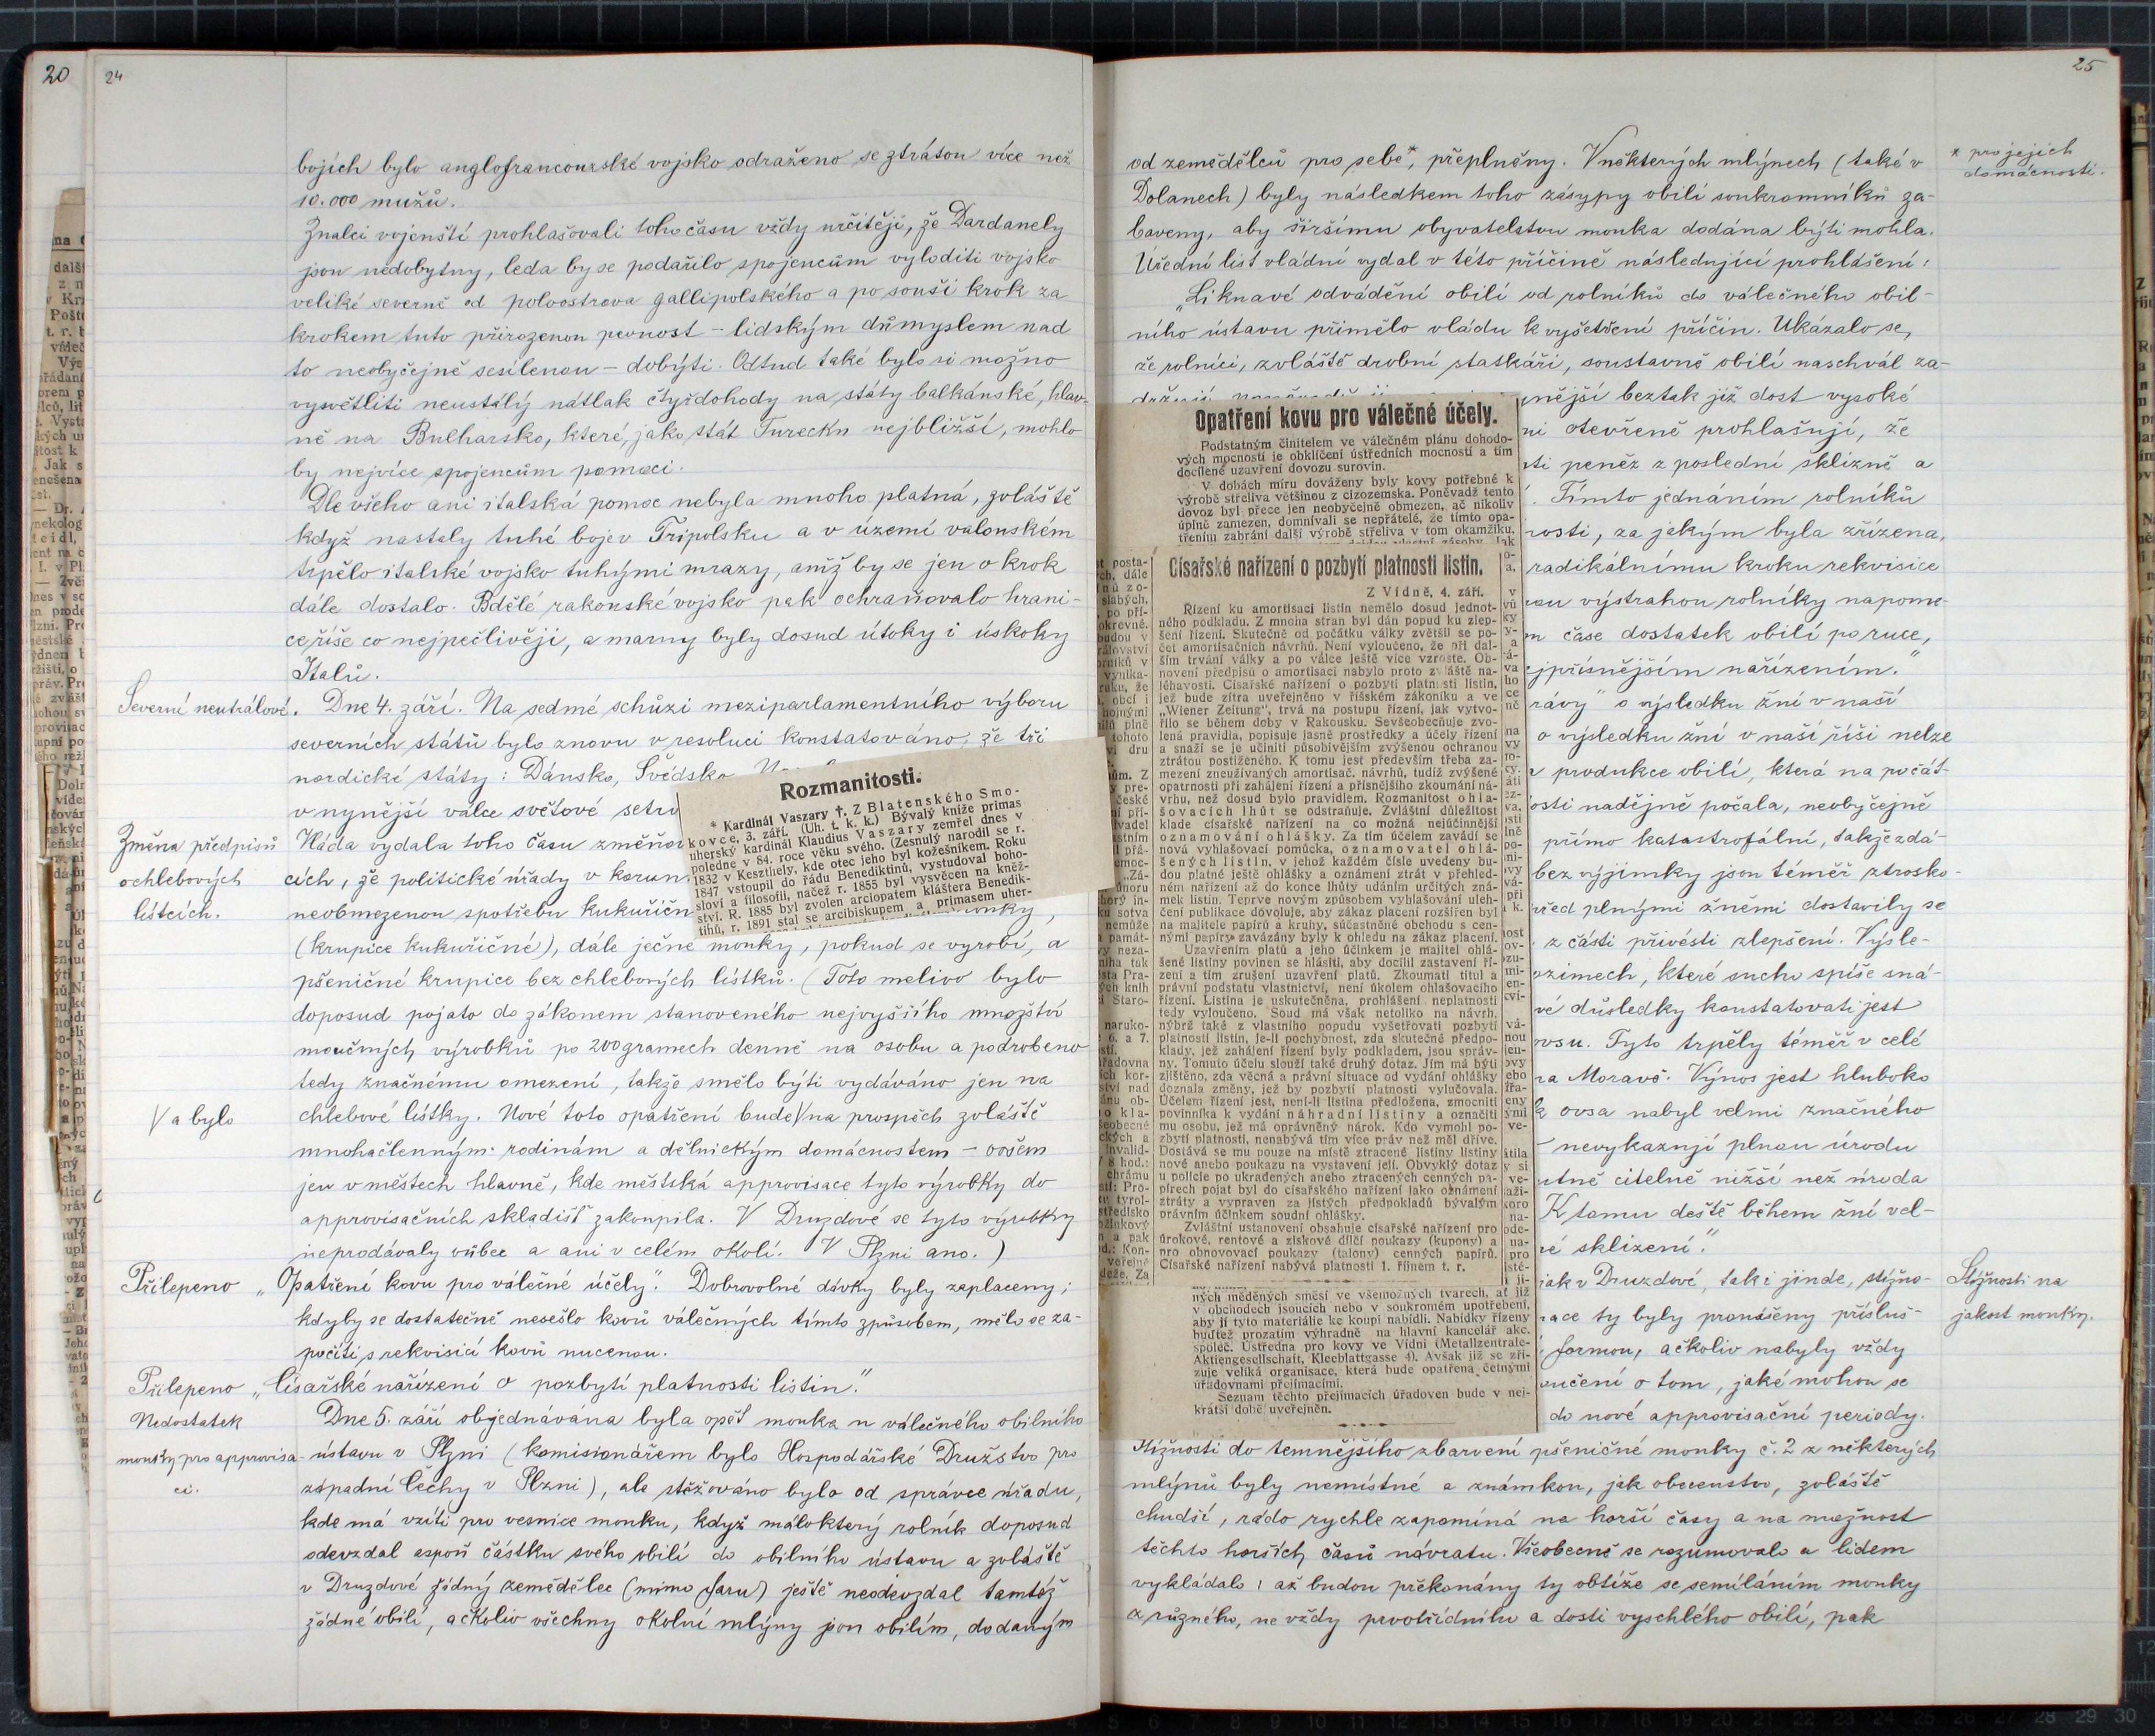 20
24
bojích bylo anglofrancouzské vojsko odraženo se ztrátou více než
10.000 mužů.
Znalci vojenští prohlašovali toho času vždy určitěji, že Dardanely
jsou nedobytny, leda by se podařilo spojencům vyloditi vojsko
veliké severně od poloostrova gallipolského a po souši krok za
krokem tuto přirozenou pevnost - lidským důmyslem nad
to neobyčejně sesílenou - dobýti. Odtud také bylo si možno
vysvětliti neustálý nátlak čtyřdohody na státy balkánské, hlav-
ně na Bulharsko, které, jako stát Turecku nejbližší, mohlo
by nejvíce spojencům pomoci.
Dle všeho ani italská pomoc nebyla mnoho platná, zvláště
když nastaly tuhé boje v Tripolsku a v území valonském
trpělo italské vojsko tuhými mrazy, aniž by se jen o krok
dále dostalo. Bdělé rakouské vojsko pak ochraňovalo hrani-
ce říše co nejpečlivěji, a marny byly dosud útoky i úskoky
Italů.
Severní neutrálové. Dne 4. září. Na sedmé schůzi meziparlamentního výboru
severních států bylo znovu v resoluci konstatováno, že tři
nordické státy: Dánsko, Švédsko
v nynější válce světové
Změna předpisů
o chlebových
lístcích.
Vláda vydala toho času
cích, že politické úřady v
neobmezenou spotřebu
(krupice kukuřičné), dále ječné mouky, pokud se vyrobí, a
pšeničné krupice bez chlebových lístků. (Toto melivo bylo
doposud pojato do zákonem stanoveného nejvyššího množství
moučných výrobků po 200 gramech denně na osobu a podrobeno
tedy značnému omezení, takže smělo býti vydáváno jen na
V a bylo
chlebové lístky. Nové toto opatření bude V na prospěch zvláště
mnohačlenným rodinám a dělnickým domácnostem - ovšem
jen v městech hlavně, kde městská approvisace tyto výrobky do
approvisačních skladišť zakoupila. V Druzdové se tyto výrobky
neprodávaly vůbec a ani v celém okolí. V Plzni ano.)
Přilepeno „Opatření kovu pro válečné účely". Dobrovolné dávky byly zaplaceny;
kdyby se dostatečně nesešlo kovů válečných tímto způsobem, mělo se za-
počíti s rekvisicí kovů nucenou.
Přilepeno „Císařské nařízení o pozbytí platnosti listin."
Nedostatek
mouky pro approvisa-
ci.
Dne 5. září objednávána byla opět mouka u válečného obilního
ústavu v Plzni (komisionářem bylo Hospodářské Družstvo pro
západní Čechy v Plzni), ale stěžováno bylo od správce úřadu,
kde má vzíti pro vesnice mouku, když málokterý rolník doposud
odevzdal aspoň částku svého obilí do obilního ústavu a zvláště
v Druzdové žádný zemědělec (mimo faru) ještě neodevzdal tamtéž
žádné obilí, ačkoliv všechny okolní mlýny jsou obilím, dodaným
Rozmanitosti.
* Kardinál Vaszary †. Z Blatenského Smo-
kovce, 3. září. (Uh. t. k. k.) Bývalý kníže primas
uherský kardinál Klaudius Vaszary zemřel dnes v
poledne v 84. roce věku svého. (Zesnulý narodil se r.
1832 v Keszthely, kde otec jeho byl kožešníkem. Roku
1847 vstoupil do řádu Benediktinů, vystudoval boho-
sloví a filosofii, načež r. 1855 byl vysvěcen na kněž-
ství. R. 1885 byl zvolen arciopatem kláštera Benedik-
tinů, r. 1891 stal se arcibiskupem a primasem uher-
25
od zemědělců pro sebe*, přeplněny. V některých mlýnech (také v
* pro jejich
domácnosti.
Dolanech) byly následkem toho zásypy obilí soukromníků za-
baveny, aby širšímu obyvatelstvu mouka dodána býti mohla.
Úřední list vládní vydal v této příčině následující prohlášení:
„Liknavé odvádění obilí od rolníků do válečného obil-
ního ústavu přimělo vládu k vyšetření příčin. Ukázalo se,
že rolníci, zvláště drobní statkáři, soustavně obilí naschvál za-
beztak již dost vysoké
otevřeně prohlašují, že
peněz z poslední sklizně a
Tímto jednáním rolníků
za jakým byla zřízena,
radikálnímu kroku rekvisice
výstrahou rolníky napome-
čase dostatek obilí po ruce,
nařízením."
o výsledku žní v naší
o výsledku žní v naší říši nelze
produkce obilí, která na počát-
nadějně počala, neobyčejně
přímo katastrofální, takže zdá-
bez výjimky jsou téměř ztrosko-
plnými žněmi dostavily se
z části přivésti zlepšení. Výsle-
ozimech, které sucho spíše sná-
důsledky konstatovati jest
ovsu. Tyto trpěly téměř v celé
na Moravě. Výnos jest hluboko
ovsa nabyl velmi značného
- nevykazují plnou úrodu
citelně nižší než úroda
K tomu deště během žní vel-
sklizení."
Stížnosti na
jakost mouky.
jak v Druzdové, tak i jinde, stížno-
ty byly pronášeny přísluš-
formou, ačkoliv nabyly vždy
o tom, jaké mohou se
do nové approvisační periody.
Stížnosti do temnějšího zbarvení pšeničné mouky č. 2 z některých
mlýnů byly nemístné a známkou, jak obecenstvo, zvláště
chudší, rádo rychle zapomíná na horší časy a na možnost
těchto horších časů návratu. Všeobecně se rozumovalo a lidem
vykládalo: až budou překonány ty obtíže se semíláním mouky
z různého, ne vždy prvotřídního a dosti vyschlého obilí, pak
Opatření kovu pro válečné účely.
Podstatným činitelem ve válečném plánu dohodo-
vých mocností je obklíčení ústředních mocností a tím
docílené uzavření dovozu surovin.
V dobách míru dováženy byly kovy potřebné k
výrobě střeliva většinou z cizozemska. Poněvadž tento
dovoz byl přece jen neobyčejně obmezen, ač nikoliv
úplně zamezen, domnívali se nepřátelé, že tímto opa-
třením zabrání další výrobě střeliva v tom okamžiku,
Císařské nařízení o pozbytí platnosti listin.
Z Vídně, 4. září.
Řízení ku amortisaci listin nemělo dosud jednot-
ného podkladu. Z mnoha stran byl dán popud ku zlep-
šení řízení. Skutečně od počátku války zvětšil se po-
čet amortisačních návrhů. Není vyloučeno, že při dal-
ším trvání války a po válce ještě více vzroste. Ob-
novení předpisů o amortisaci nabylo proto zvláště na-
léhavosti. Císařské nařízení o pozbytí platnosti listin,
jež bude zítra uveřejněno v říšském zákoníku a ve
„Wiener Zeitung", trvá na postupu řízení, jak vytvo-
řilo se během doby v Rakousku. Sevšeobecňuje zvo-
lená pravidla, popisuje jasně prostředky a účely řízení
a snaží se je učiniti působivějším zvýšenou ochranou
ztrátou postiženého. K tomu jest především třeba za-
mezení zneužívaných amortisač. návrhů, tudíž zvýšené
opatrnosti při zahájení řízení a přísnějšího zkoumání ná-
vrhu, než dosud bylo pravidlem. Rozmanitost ohla-
šovacích lhůt se odstraňuje. Zvláštní důležitost
klade císařské nařízení na co možná nejúčinnější
oznamování ohlášky. Za tím účelem zavádí se
nová vyhlašovací pomůcka, oznamovatel ohlá-
šených listin, v jehož každém čísle uvedeny bu-
dou platné ještě ohlášky a oznámení ztrát v přehled-
ném nařízení až do konce lhůty udáním určitých zná-
mek listin. Teprve novým způsobem vyhlašování uleh-
čení publikace dovoluje, aby zákaz placení rozšířen byl
na majitele papírů a kruhy, súčastněné obchodu s cen-
nými papíry zavázány byly k ohledu na zákaz placení.
Uzavřením platů a jeho účinkem je majitel ohlá-
šené listiny povinen se hlásiti, aby docílil zastavení ří-
zení a tím zrušení uzavření platů. Zkoumati titul a
právní podstatu vlastnictví, není úkolem ohlašovacího
řízení. Listina je uskutečněna, prohlášení neplatnosti
tedy vyloučeno. Soud má však netoliko na návrh,
nýbrž také z vlastního popudu vyšetřovati pozbytí
platnosti listin, je-li pochybnost, zda skutečné předpo-
klady, jež zahájení řízení byly podkladem, jsou správ-
ny. Tomuto účelu slouží také druhý dotaz. Jím má býti
zjištěno, zda věcná a právní situace od vydání ohlášky
doznala změny, jež by pozbytí platnosti vylučovala.
Účelem řízení jest, není-li listina předložena, zmocniti
povinníka k vydání náhradní listiny a označiti
mu osobu, jež má oprávněný nárok. Kdo vymohl po-
zbytí platnosti, nenabývá tím více práv než měl dříve.
Dostává se mu pouze na místě ztracené listiny listiny
nové anebo poukazu na vystavení její. Obvyklý dotaz
u policie po ukradených anebo ztracených cenných pa-
pírech pojat byl do císařského nařízení jako oznámení
ztráty a vypraven za jistých předpokladů bývalým
právním účinkem soudní ohlášky.
Zvláštní ustanovení obsahuje císařské nařízení pro
úrokové, rentové a ziskové dílčí poukazy (kupony) a
pro obnovovací poukazy (talony) cenných papírů.
Císařské nařízení nabývá platnosti 1. října t. r.
ných měděných směsí ve všemožných tvarech, ať již
v obchodech jsoucích nebo v soukromém upotřebení,
aby jí tyto materiálie ke koupi nabídli. Nabídky řízeny
buďtež prozatím výhradně na hlavní kancelář akc.
společ. Ústředna pro kovy ve Vídni (Metallzentrale-
Aktiengesellschaft, Kleeblattgasse 4). Avšak již se zři-
zuje veliká organisace, která bude opatřena četnými
úřadovnami přejímacími.
Seznam těchto přejímacích úřadoven bude v nej-
kratší době uveřejněn.